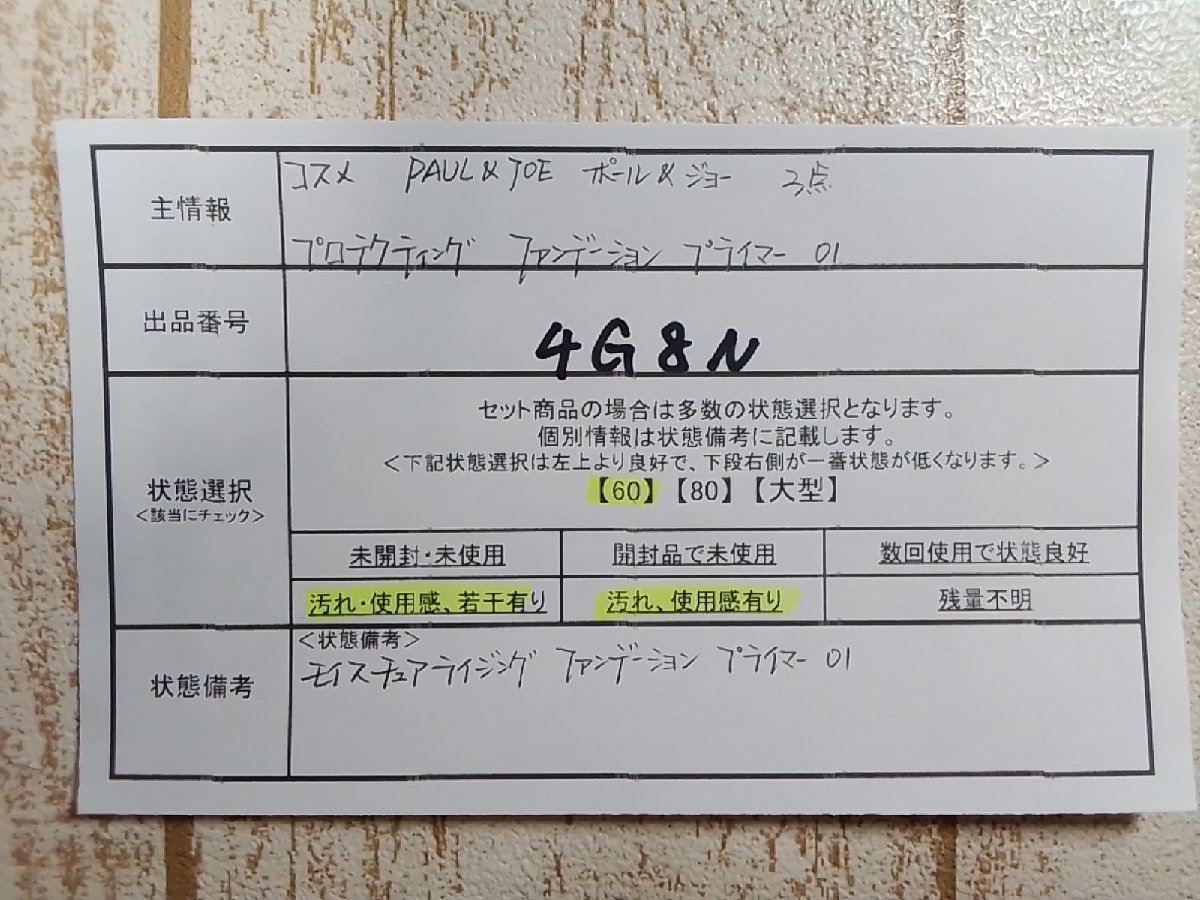 主情報
コスメ PAUL & JOE ポール & ジョー 3点
プロテクティング ファンデーション プライマー 01
出品番号
4G8N
状態選択
<該当にチェック>
セット商品の場合は多数の状態選択となります。
個別情報は状態備考に記載します。
<下記状態選択は左上より良好で、下段右側が一番状態が低くなります。>
【60】【80】【大型】
未開封・未使用 開封品で未使用 数回使用で状態良好
汚れ・使用感、若干有り 汚れ、使用感有り 残量不明
状態備考
<状態備考>
モイスチュアライジング ファンデーション プライマー 01